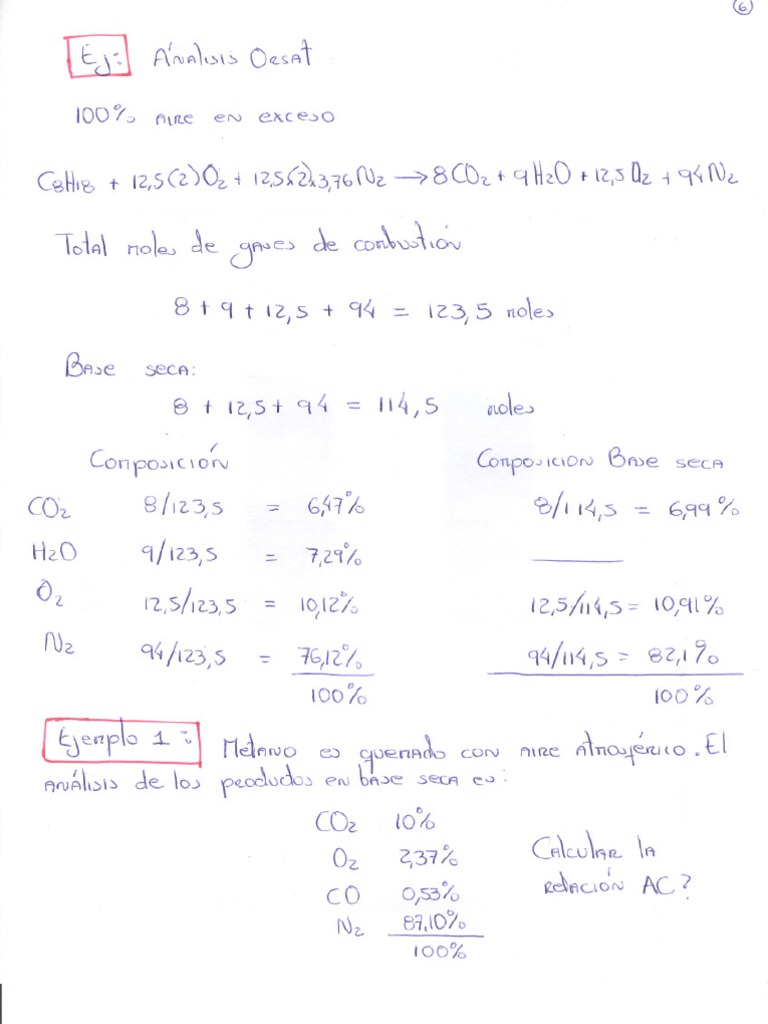 6
Ej: Análisis Orsat
100% aire en exceso
C8H18 + 12,5(2)O2 + 12,5x2x3,76N2 → 8CO2 + 9H2O + 12,5O2 + 94N2
Total moles de gases de combustión
8 + 9 + 12,5 + 94 = 123,5 moles
Base seca:
8 + 12,5 + 94 = 114,5 moles
Composición Composicion Base seca
CO2 8/123,5 = 6,47% 8/114,5 = 6,99%
H2O 9/123,5 = 7,29% ———
O2 12,5/123,5 = 10,12% 12,5/114,5 = 10,91%
N2 94/123,5 = 76,12% 94/114,5 = 82,1%
100% 100%
Ejemplo 1: Metano es quemado con aire atmosférico. El
análisis de los productos en base seca es:
CO2 10%
O2 2,37% Calcular la
CO 0,53% relación AC?
N2 87,10%
100%